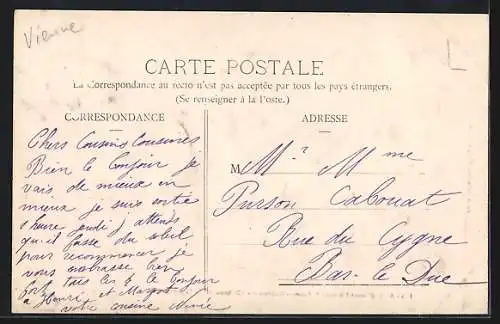 Vienne
L
CARTE POSTALE
La Correspondance au recto n'est pas acceptée par tous les pays étrangers.
(Se renseigner à la Poste.)
CORRESPONDANCE
ADRESSE
Chers Cousins Cousines
Bien le bonjour je
vais de mieux en
mieux je suis sortie
1 heure jeudi j attends
qu'il fasse du soleil
pour recommencer je
vous embrasse bien
fort tous les le bonjour
a Henri et Margot
votre cousine
M Mr Mme
Purson Cabouat
Rue du Cygne
Bar-le Duc